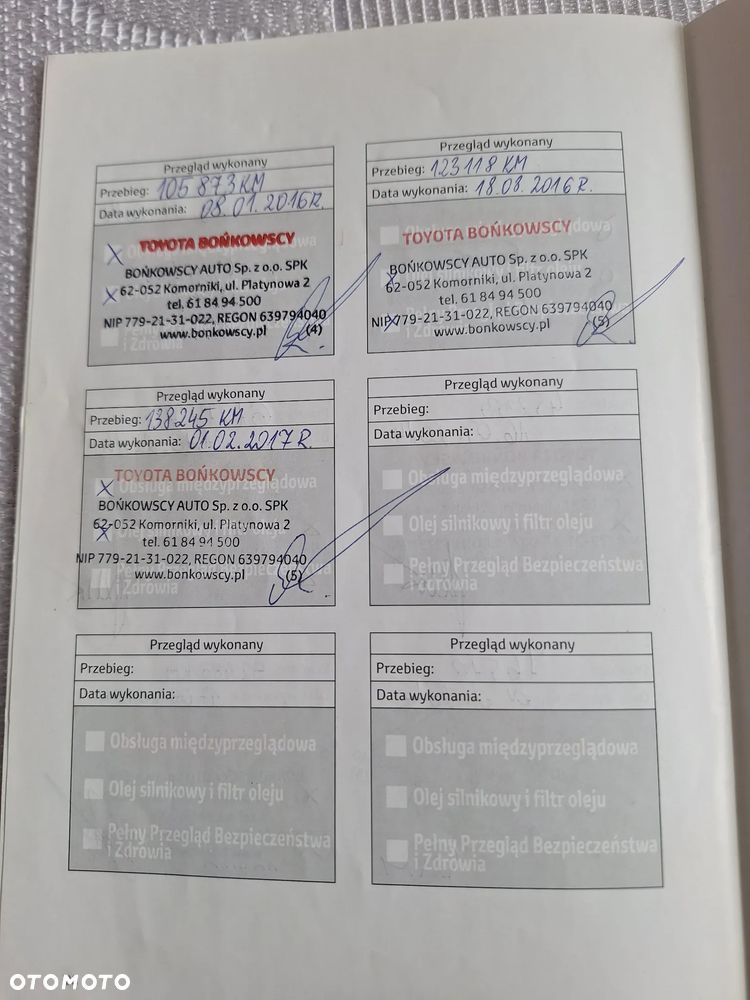 Przegląd wykonany
Przebieg: 105 873 KM
Data wykonania: 08.01.2016R.
TOYOTA BOŃKOWSCY
BOŃKOWSCY AUTO Sp. z o.o. SPK
62-052 Komorniki, ul. Platynowa 2
tel. 61 84 94 500
NIP 779-21-31-022, REGON 639794040
www.bonkowscy.pl (4)
i Zdrowia
Przegląd wykonany
Przebieg: 123118 KM
Data wykonania: 18.08.2016R.
TOYOTA BOŃKOWSCY
BOŃKOWSCY AUTO Sp. z o.o. SPK
62-052 Komorniki, ul. Platynowa 2
tel. 61 84 94 500
NIP 779-21-31-022, REGON 639794040
www.bonkowscy.pl (5)
i Zdrowia
Przegląd wykonany
Przebieg: 138245 KM
Data wykonania: 01.02.2017R.
TOYOTA BOŃKOWSCY
Obsługa międzyprzeglądowa
BOŃKOWSCY AUTO Sp. z o.o. SPK
62-052 Komorniki, ul. Platynowa 2
tel. 61 84 94 500
NIP 779-21-31-022, REGON 639794040
www.bonkowscy.pl (5)
i Zdrowia
Przegląd wykonany
Przebieg:
Data wykonania:
Obsługa międzyprzeglądowa
Olej silnikowy i filtr oleju
Pełny Przegląd Bezpieczeństwa
i Zdrowia
Przegląd wykonany
Przebieg:
Data wykonania:
Obsługa międzyprzeglądowa
Olej silnikowy i filtr oleju
Pełny Przegląd Bezpieczeństwa
i Zdrowia
Przegląd wykonany
Przebieg:
Data wykonania:
Obsługa międzyprzeglądowa
Olej silnikowy i filtr oleju
Pełny Przegląd Bezpieczeństwa
i Zdrowia
OTOMOTO